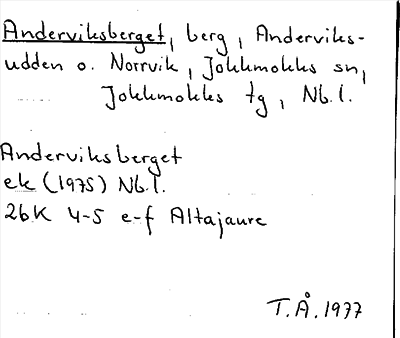 Anderviksberget, berg, Anderviks-
udden o. Norrvik, Jokkmokks sn,
Jokkmokks tg, Nb.l.
Anderviksberget
ek (1975) Nb.l.
26K 4-5 e-f Altajaure
T.Å. 1977